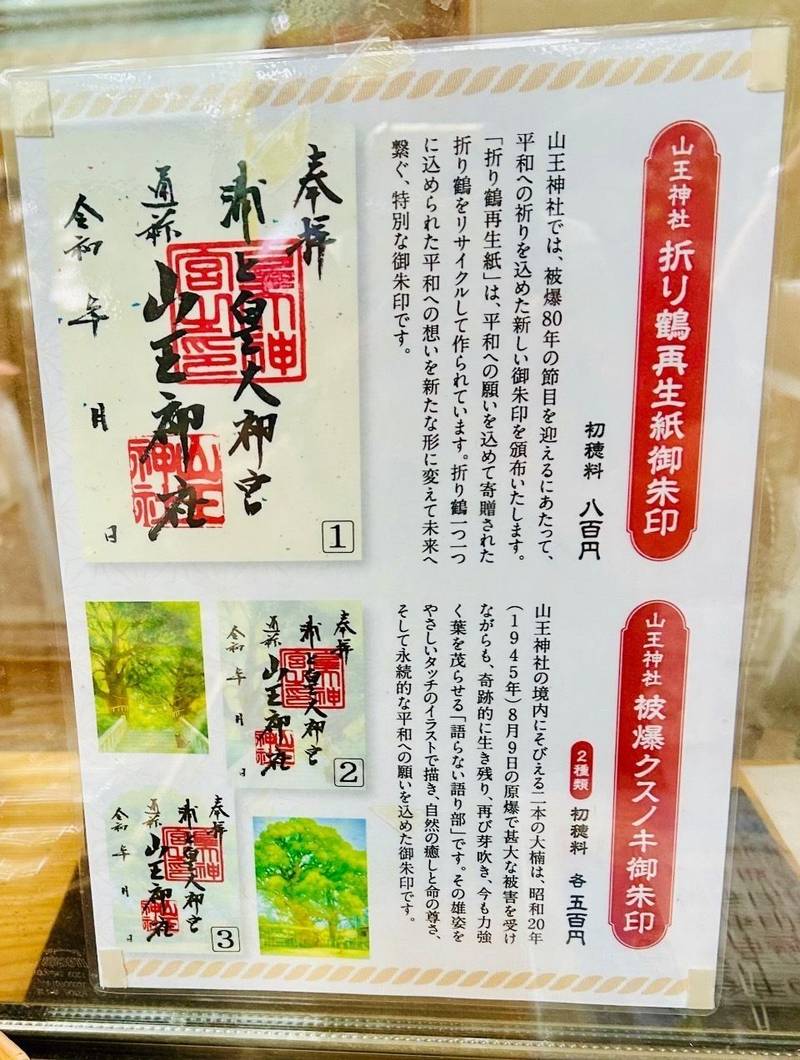 山王神社 折り鶴再生紙御朱印
初穂料 八百円
山王神社では、被爆80年の節目を迎えるにあたって、
平和への祈りを込めた新しい御朱印を頒布いたします。
「折り鶴再生紙」は、平和への願いを込めて寄贈された
折り鶴をリサイクルして作られています。折り鶴一つ一つ
に込められた平和への想いを新たな形に変えて未来へ
繋ぐ、特別な御朱印です。
奉拝
浦上皇大神宮
通称
山王神社
令和 年 月 日
1
山王神社 被爆クスノキ御朱印
2種類 初穂料 各五百円
山王神社の境内にそびえる二本の大楠は、昭和20年
(1945年)8月9日の原爆で甚大な被害を受け
ながらも、奇跡的に生き残り、再び芽吹き、今も力強
く葉を茂らせる「語らない語り部」です。その雄姿を
やさしいタッチのイラストで描き、自然の癒しと命の尊さ、
そして永続的な平和への願いを込めた御朱印です。
奉拝
浦上皇大神宮
通称
山王神社
令和 年 月 日
2
奉拝
浦上皇大神宮
通称
山王神社
令和 年 月 日
3